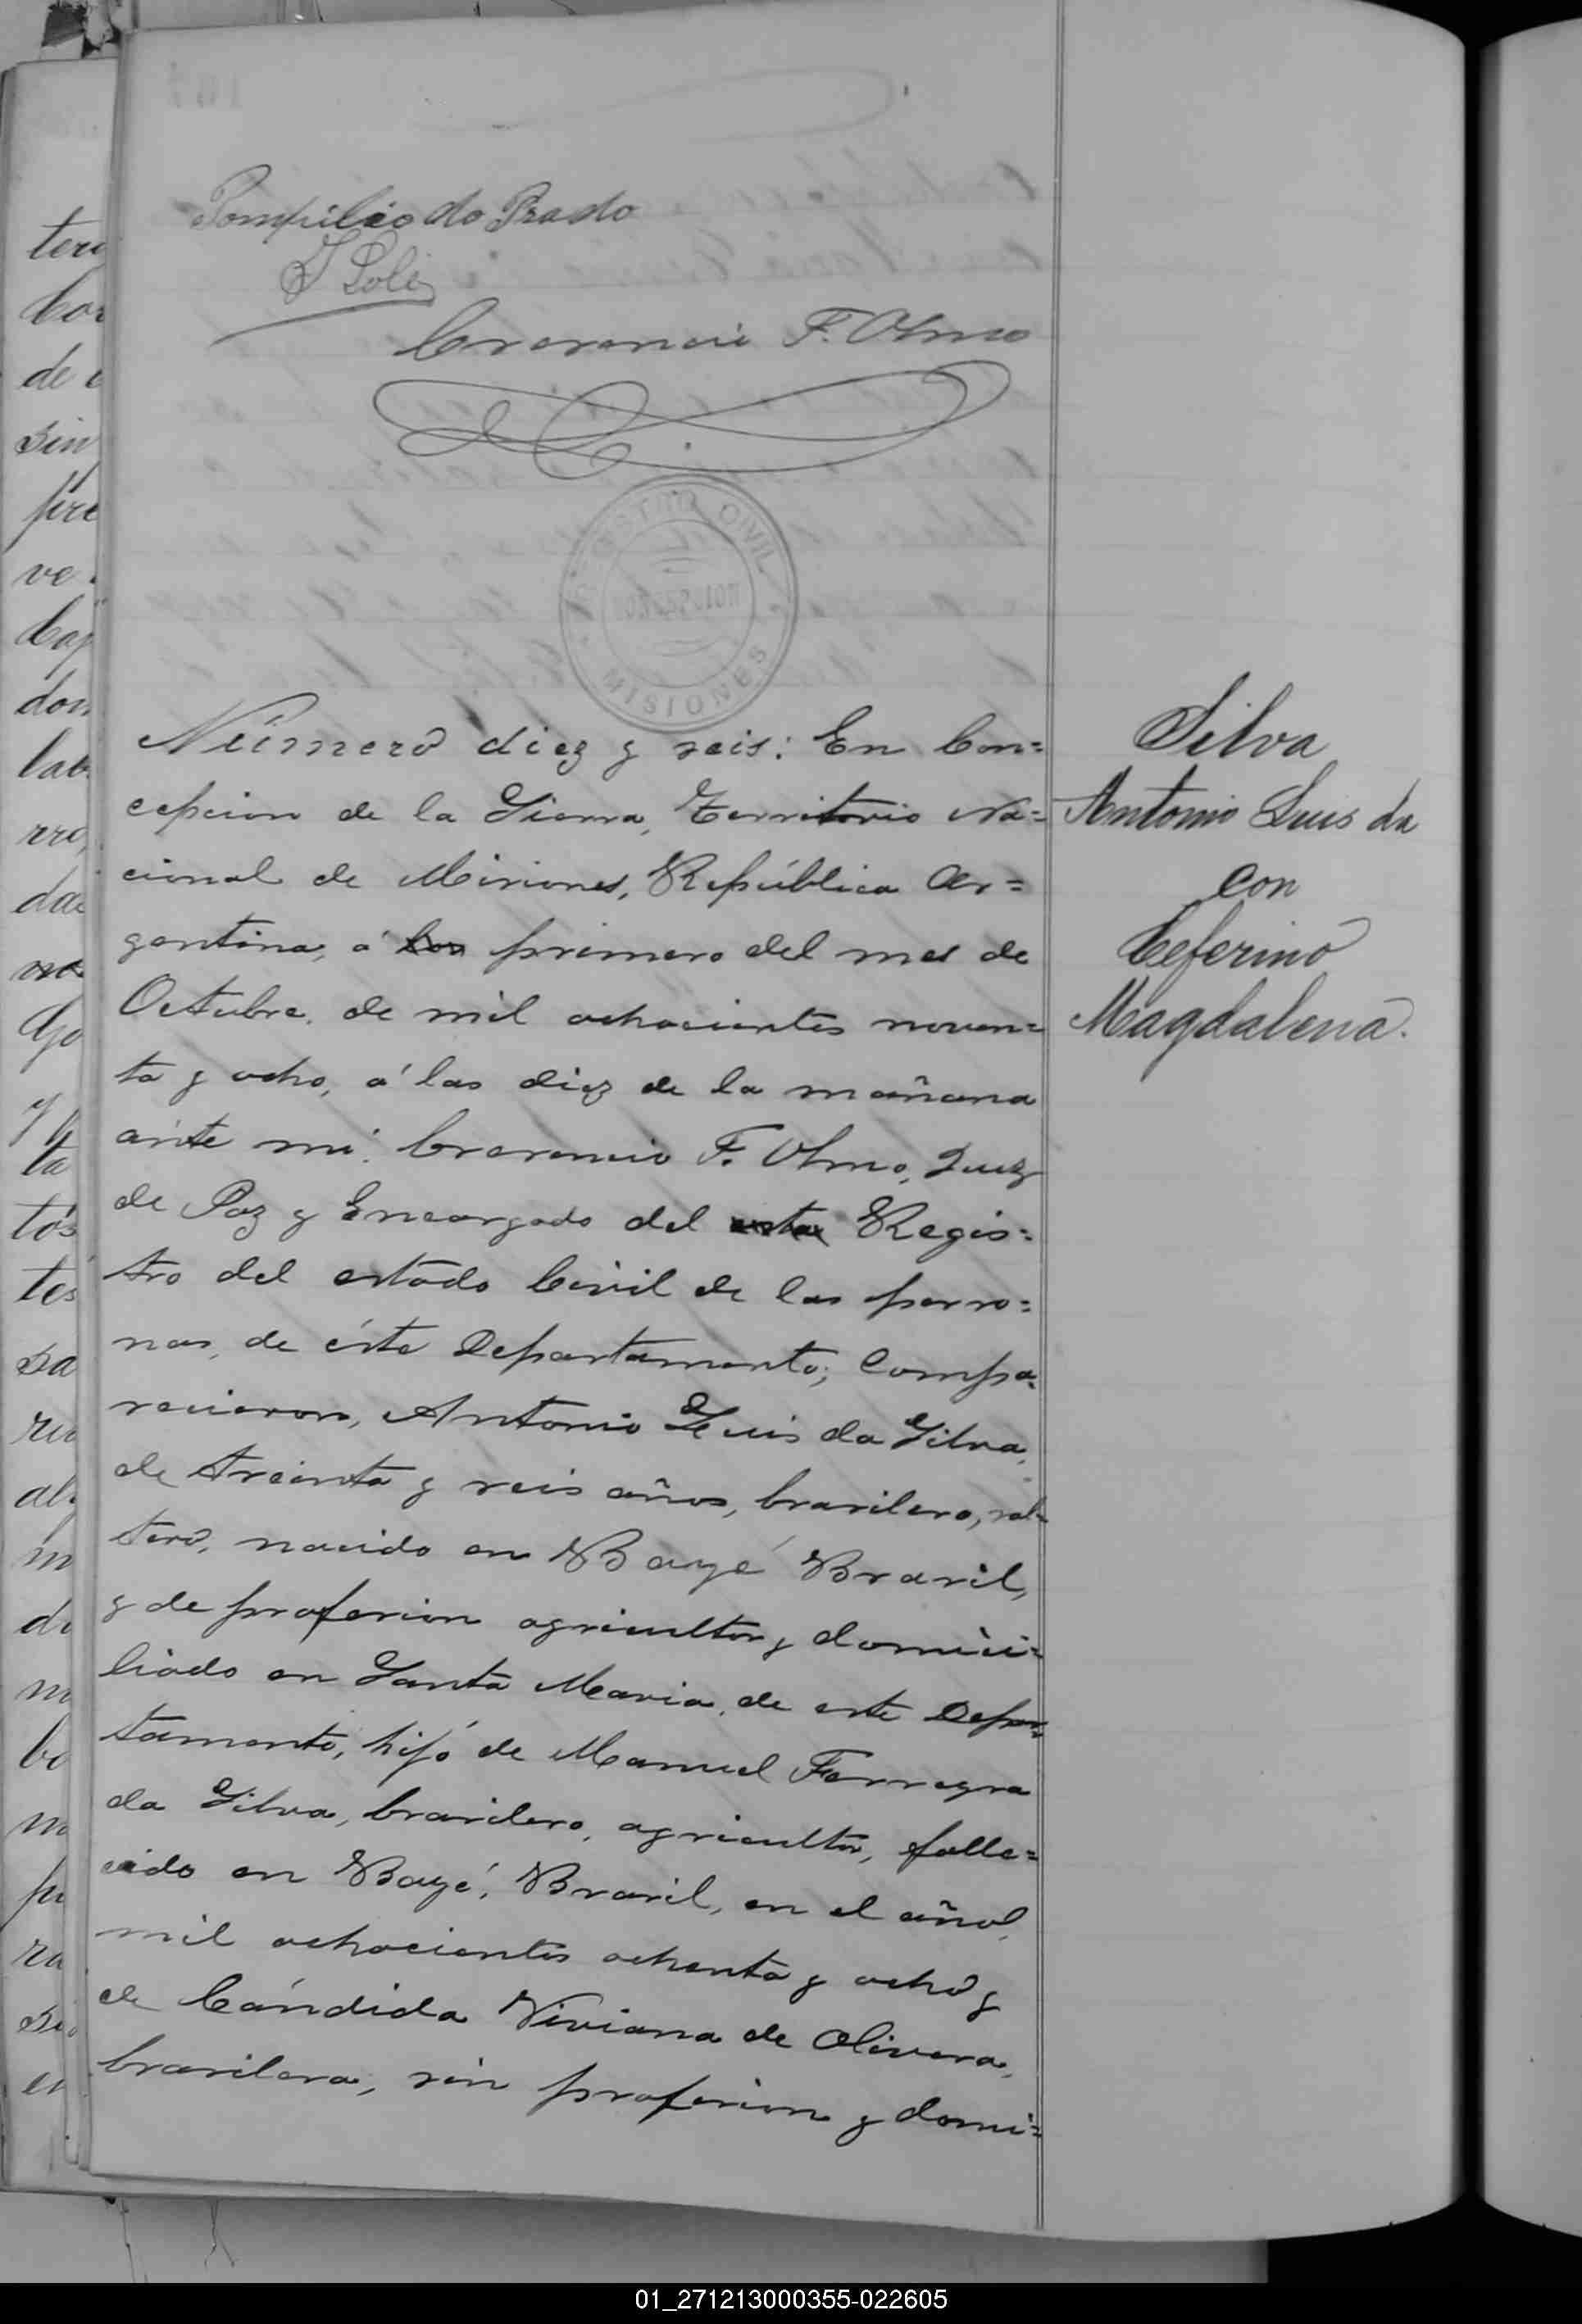 Pompilio do Prado
Crecencio F. Olmo
REGISTRO CIVIL
CONCEPCION
MISIONES
Número diez y seis: En Con=
cepcion de la Sierra, Territorio Na=
cional de Misiones, República Ar=
gentina, á los primero del mes de
Octubre de mil ochocientos noven=
ta y ocho, á las diez de la mañana
ante mi: Crecencio F. Olmo, Juez
de Paz y Encargado del Regis=
tro del estado Civil de las perso=
nas, de éste Departamento; Compa=
recieron, Antonio Luis da Silva,
de treinta y seis años, brasilero, sol=
tero, nacido en Bagé Brasil,
y de profesion agricultor y domici=
liado en Santa Maria, de este Depar=
tamento, hijo de Manuel
da Silva, brasilero, agricultor, falle=
cido en Bagé, Brasil, en el año
mil ochocientos ochenta y ocho y
de Cándida Viviana de Olivera,
brasilera, sin profesion y domi=
Silva
Antonio Luis da
con
Ceferino
Magdalena.
tos
sin
ve
don
ta
sa
de
01_271213000355-022605